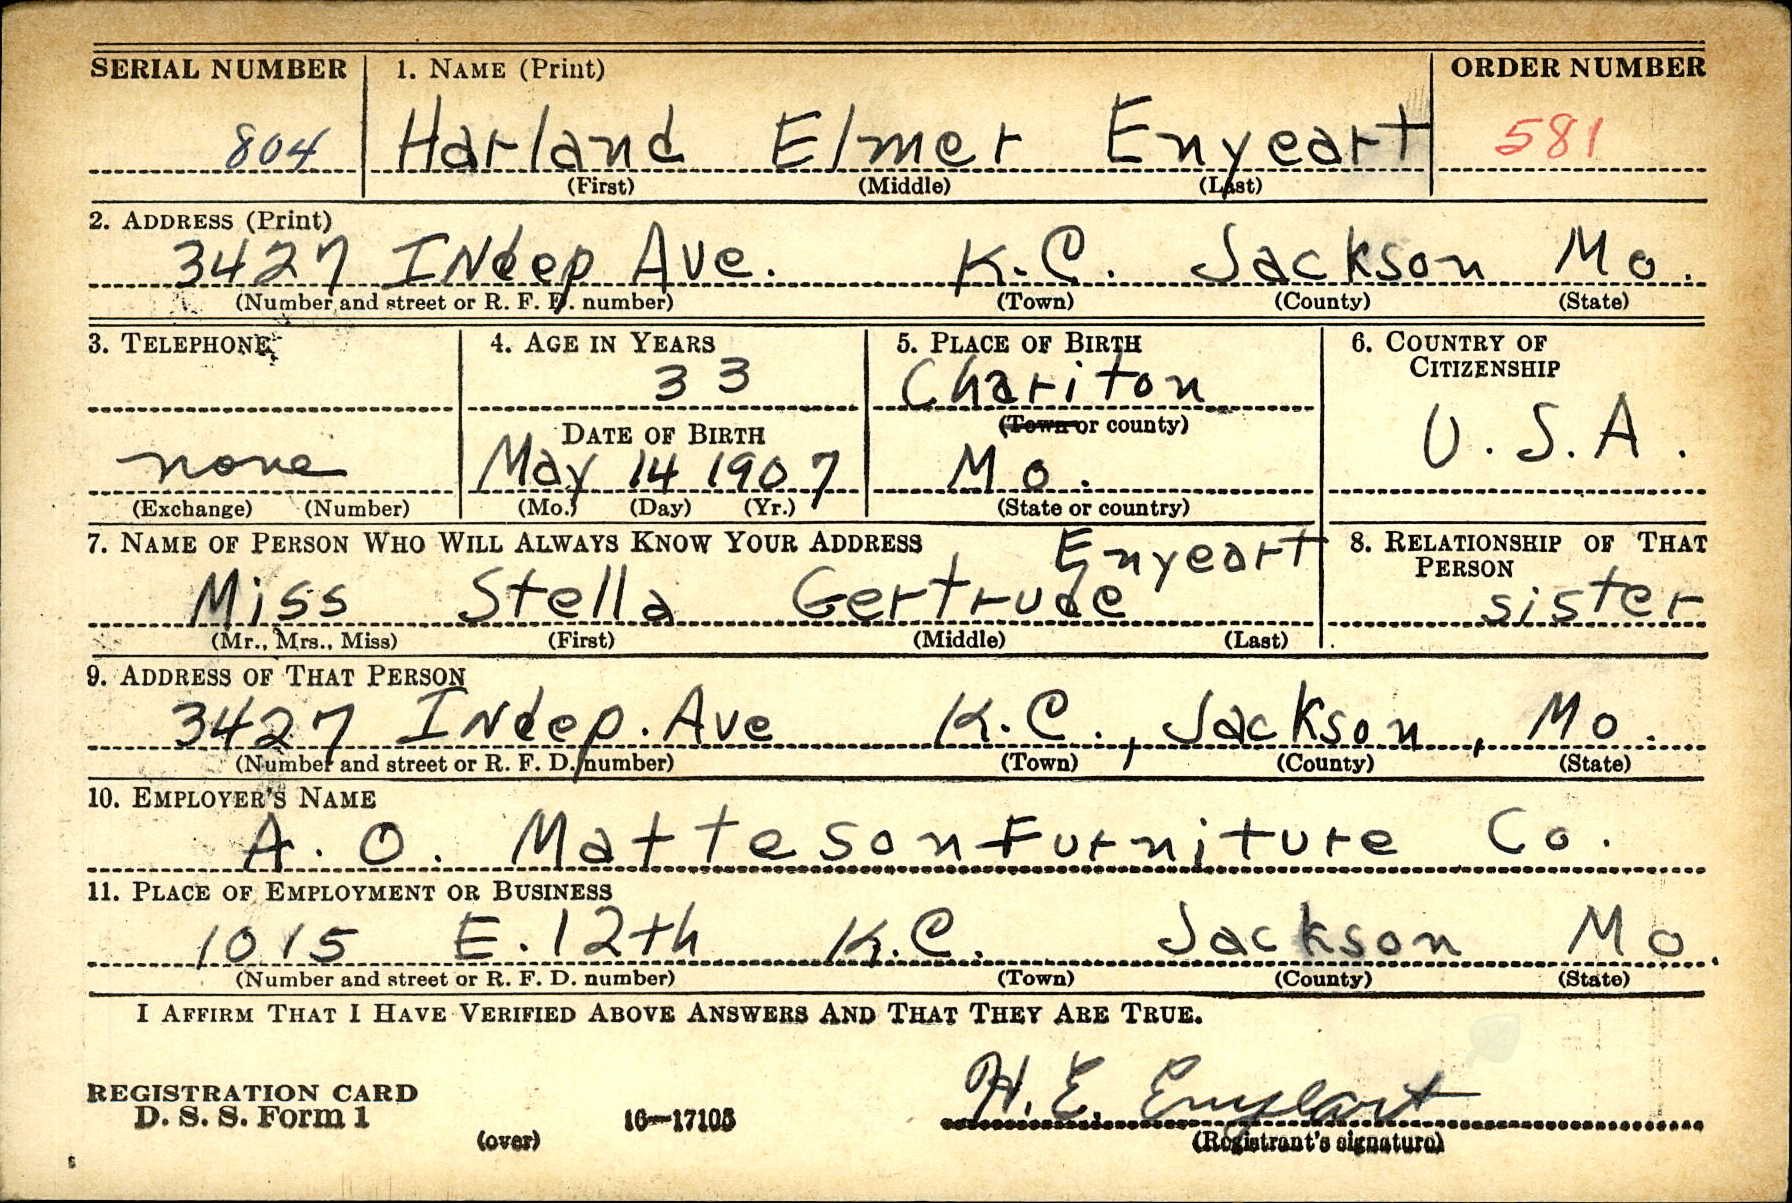 SERIAL NUMBER 1. NAME (Print) ORDER NUMBER
804 Harland Elmer Enyeart 581
(First) (Middle) (Last)
2. ADDRESS (Print)
3427 Indep Ave. K.C. Jackson Mo.
(Number and street or R. F. D. number) (Town) (County) (State)
3. TELEPHONE 4. AGE IN YEARS 5. PLACE OF BIRTH 6. COUNTRY OF
CITIZENSHIP
33 Chariton
(Town or county)
DATE OF BIRTH
U.S.A.
none May 14 1907 Mo.
(Exchange) (Number) (Mo.) (Day) (Yr.) (State or country)
7. NAME OF PERSON WHO WILL ALWAYS KNOW YOUR ADDRESS 8. RELATIONSHIP OF THAT
PERSON
Enyeart
Miss Stella Gertrude sister
(Mr., Mrs., Miss) (First) (Middle) (Last)
9. ADDRESS OF THAT PERSON
3427 Indep. Ave K.C., Jackson, Mo.
(Number and street or R. F. D. number) (Town) (County) (State)
10. EMPLOYER'S NAME
A. O. Matteson Furniture Co.
11. PLACE OF EMPLOYMENT OR BUSINESS
1015 E. 12th K.C. Jackson Mo.
(Number and street or R. F. D. number) (Town) (County) (State)
I AFFIRM THAT I HAVE VERIFIED ABOVE ANSWERS AND THAT THEY ARE TRUE.
H. E. Enyeart
REGISTRATION CARD
D. S. S. Form 1 16—17105
(over) (Registrant's signature)